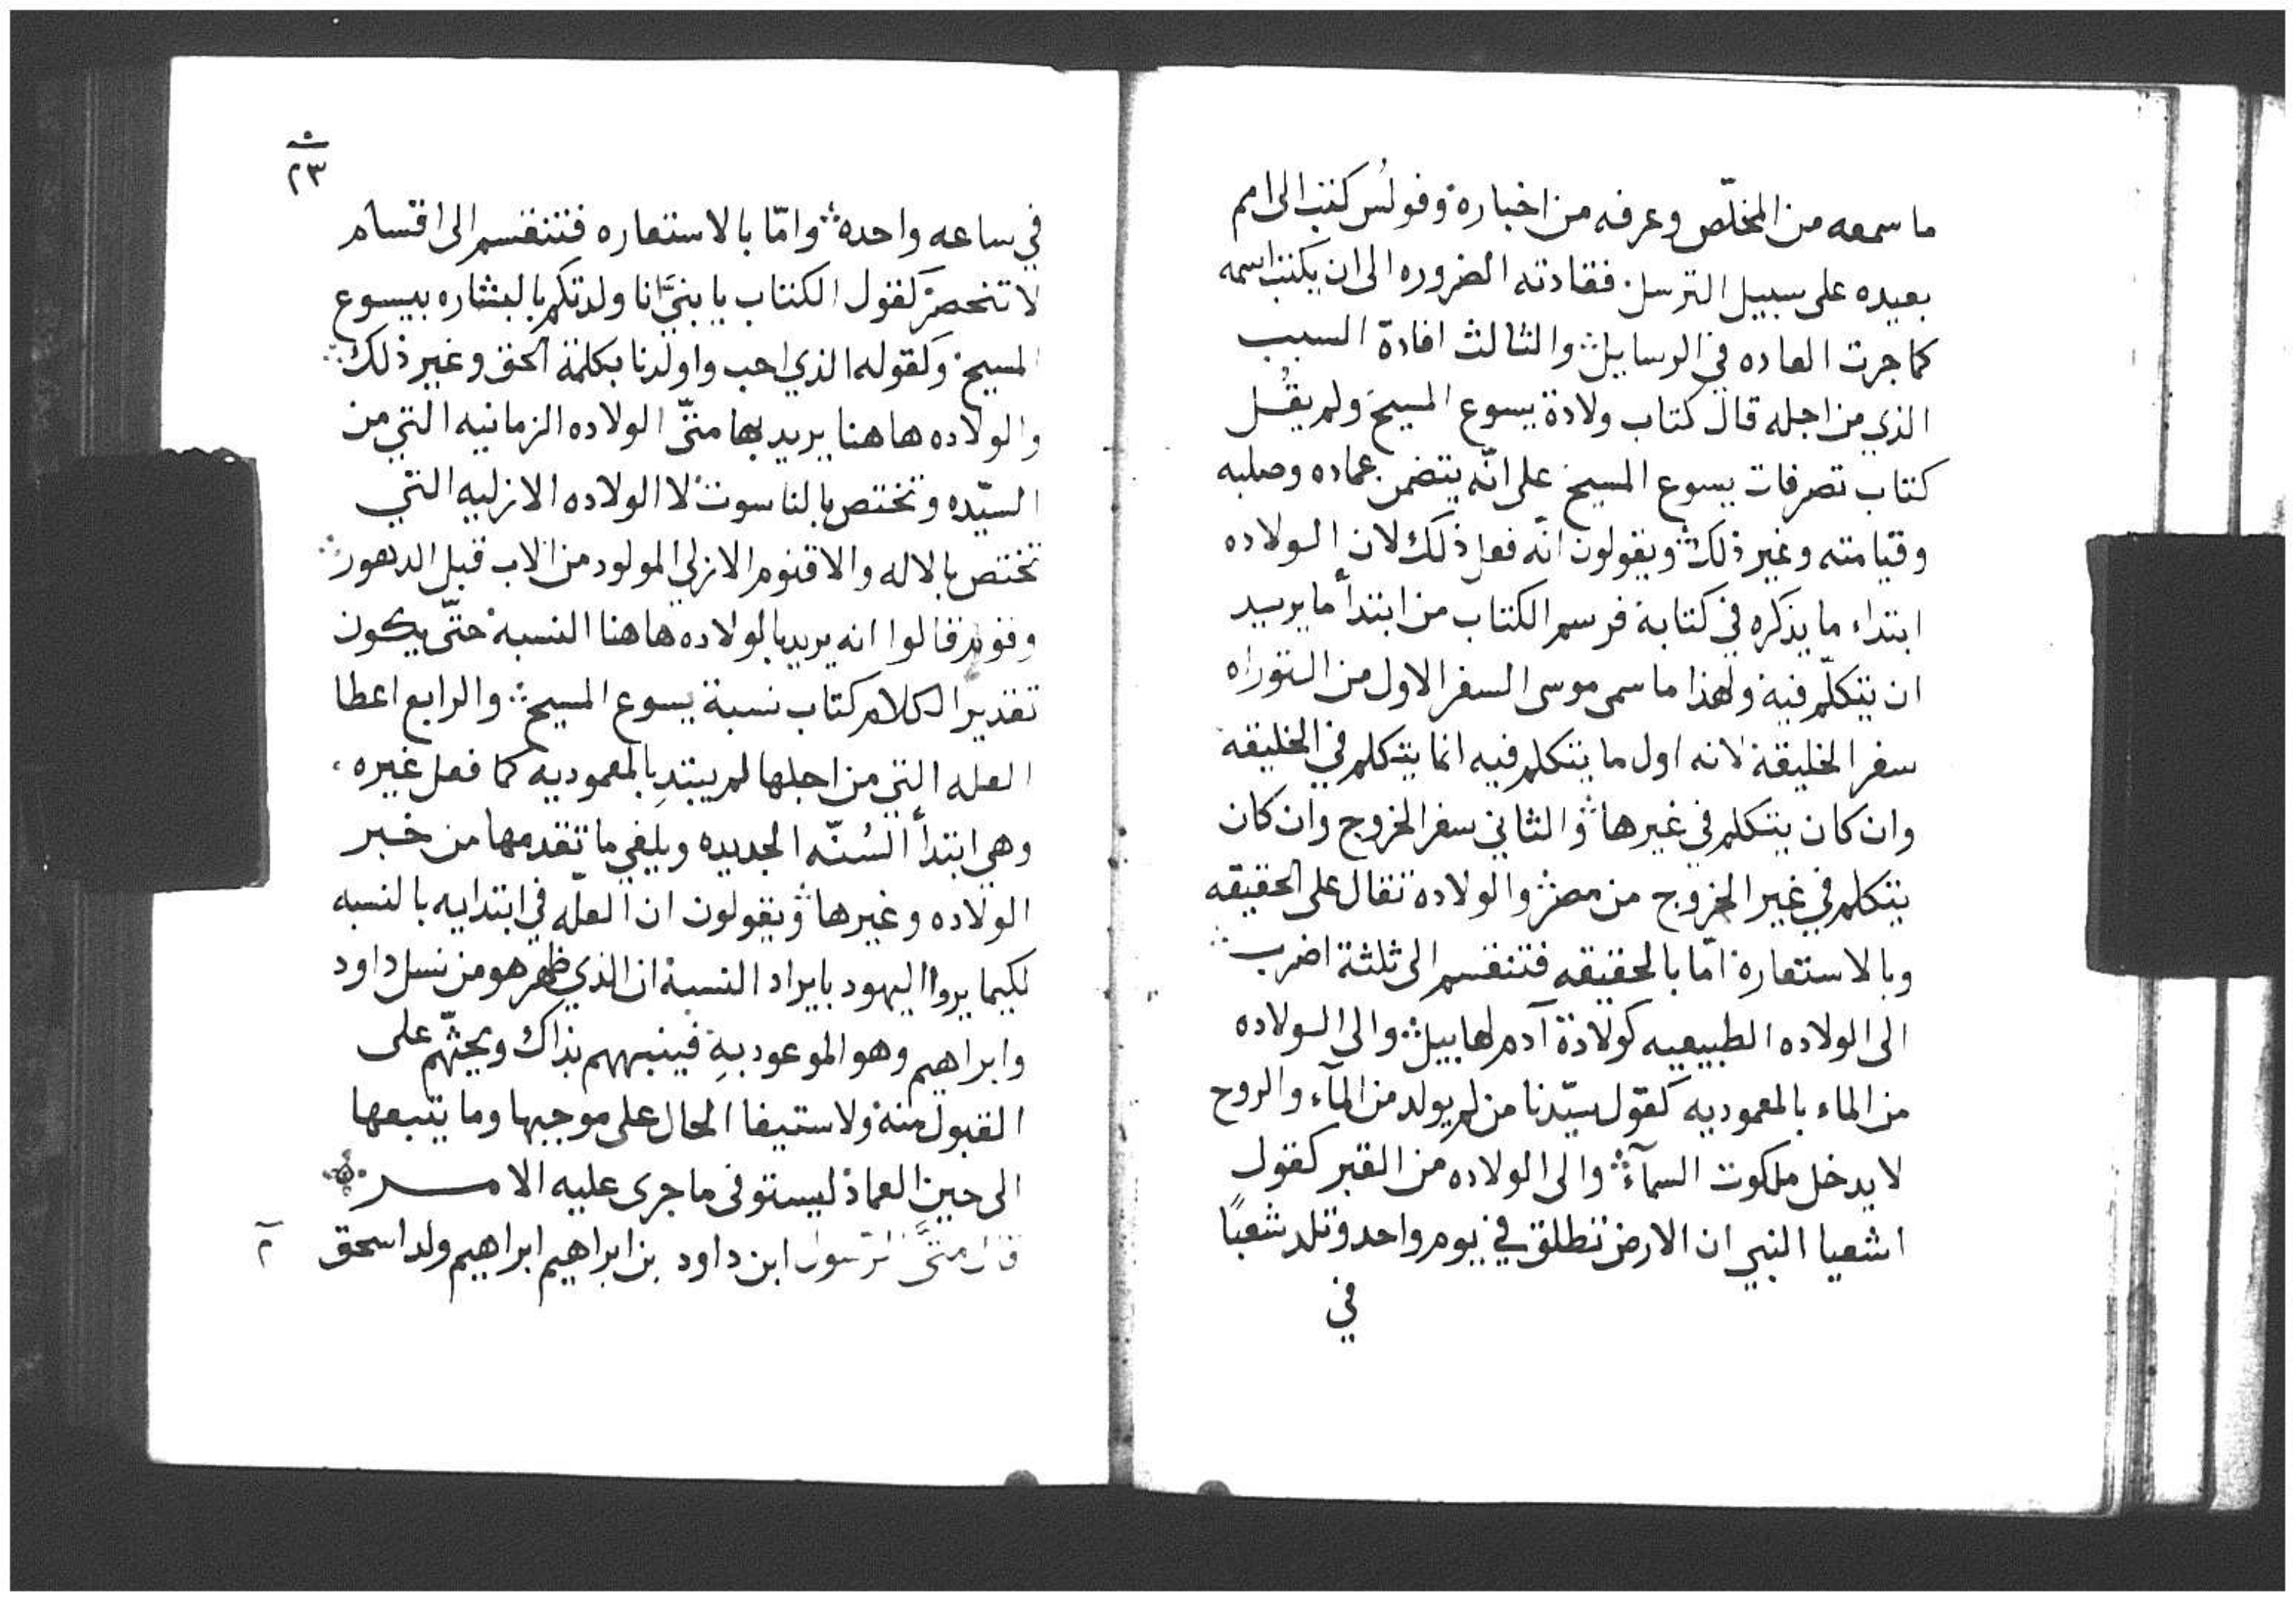 ما سمعه من المخلّص وعرفه من اخباره وفولُس كتب الى امم
بعيده على سبيل الترسل فقادته الضروره الى ان يكتب اسمه
كما جرت العاده في الرسايل والثالث افادة السبب
الذي من اجله قال كتاب ولادة يسوع المسيح ولم يقُل
كتاب تصرفات يسوع المسيح على انّه يتضمن عماده وصلبه
وقيامته وغير ذلك ويقولون انّه فعل ذلك لان الولاده
ابتداء ما يذكره في كتابة فرسم الكتاب من ابتدأ ما يريد
ان يتكلّم فيه ولهذا ما سمى موسى السفر الاول من التوراه
سفر الخليقة لانه اول ما يتكلم فيه انما يتكلم في الخليقه
وان كان يتكلم في غيرها والثاني سفر الخروج وان كان
يتكلم في غير الخروج من مصر والولادة تقال على الحقيقه
وبالاستعارة امّا بالحقيقه فتنقسم الى ثلثة اضرب
الى الولاده الطبيعيه كولادة آدم لهابيل والى الولاده
من الماء بالمعموديه كقول سيّدنا من لم يولد من المآء والروح
لا يدخل ملكوت السمآء والى الولاده من القبر كقول
اشعيا النبي ان الارض تطلق في يوم واحد وتلد شعبًا
في
٢٣
في ساعه واحده وامّا بالاستعاره فتنقسم الى اقسام
لا تنحصر كقول الكتاب يا بنيَّ انا ولدتكم بالبشاره بيسوع
المسيح وكقوله الذي احب واولدنا بكلمة الحق وغير ذلك
والولاده هاهنا يريد بها متّى الولاده الزمانيه التي من
السيّده وتختص بالناسوت لا الولاده الازليه التي
تختص بالاله والاقنوم الازلي المولود من الاب قبل الدهور
وقوم قالوا انه يريد بالولاده هاهنا النسبة حتّى يكون
تقدير الكلام كتاب نسبة يسوع المسيح والرابع اعطا
العله التي من اجلها لم يبتدِ بالمعموديه كما فعل غيره
وهي ابتدأ السُنّه الجديده ويلغي ما تقدمها من خبر
الولاده وغيرها ويقولون ان العلّه في ابتدايه بالنسبه
لكيما يروا اليهود بايراد النسبة ان الذي ظهر هو من نسل داود
وابراهيم وهو الموعود بهِ فينبههم بذاك ويحثّهم على
القبول منه ولاستيفا الحال على موجبها وما يتبعها
الى حين العماد ليستوفى ما جرى عليه الامر
قال متَّى الرسول ابن داود بن ابراهيم ابراهيم ولد اسحق
٢